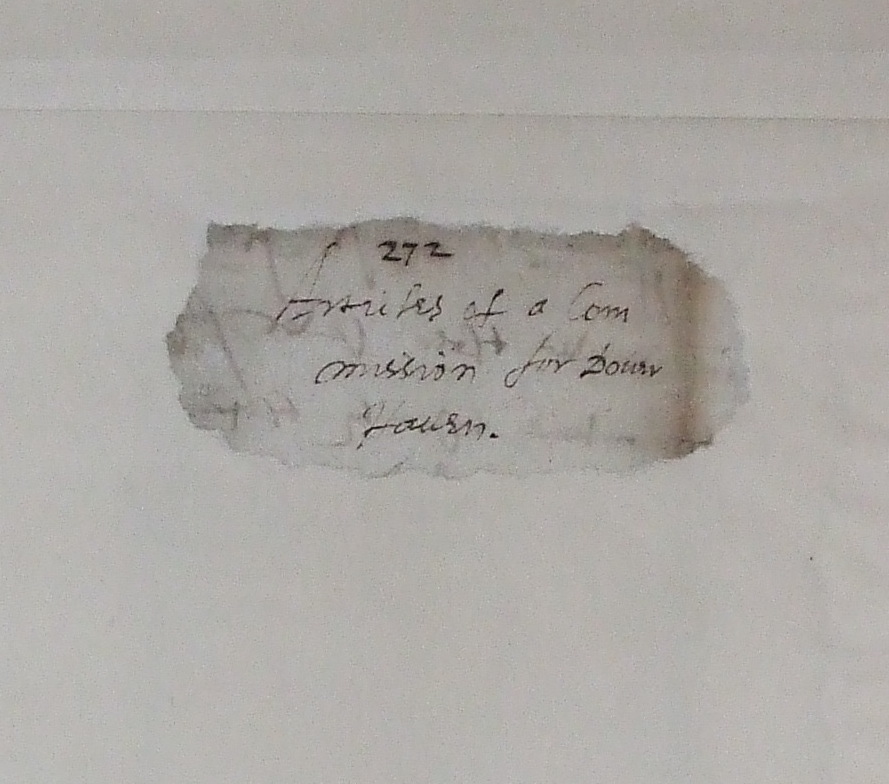 272
Articles of a Com
mission for Dover
Hauen.